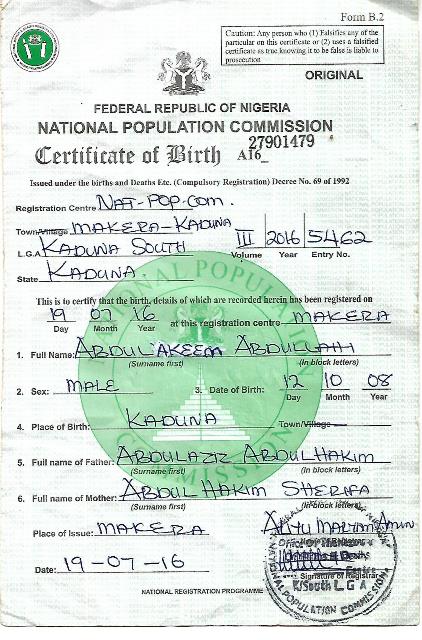 Form B.2
Caution: Any person who (1) Falsifies any of the
particular on this certificate or (2) uses a falsified
certificate as true knowing it to be false is liable to
prosecution
ORIGINAL
FEDERAL REPUBLIC OF NIGERIA
NATIONAL POPULATION COMMISSION
Certificate of Birth A16_ 27901479
Issued under the births and Deaths Etc. (Compulsory Registration) Decree No. 69 of 1992
Registration Centre NAT-POP.COM.
Town/Village MAKERA-KADUNA
L.G.A KADUNA SOUTH III 2016 5462
Volume Year Entry No.
State KADUNA.
This is to certify that the birth, details of which are recorded herein has been registered on
19 07 16 at this registration centre MAKERA
Day Month Year
1. Full Name: ABDULAKEEM ABDULLAHI
(Surname first) (In block letters)
2. Sex: MALE 3. Date of Birth: 12 10 08
Day Month Year
4. Place of Birth: KADUNA Town/Village
5. Full name of Father: ABDULAZIZ ABDULHAKIM
(Surname first) (In block letters)
6. Full name of Mother: ABDUL HAKIM SHERIFA
(Surname first) (In block letters)
Place of Issue: MAKERA
Date: 19-07-16
Signature of Registrar
K/South L G A
NATIONAL POPULATION COMMISSION
NATIONAL REGISTRATION PROGRAMME